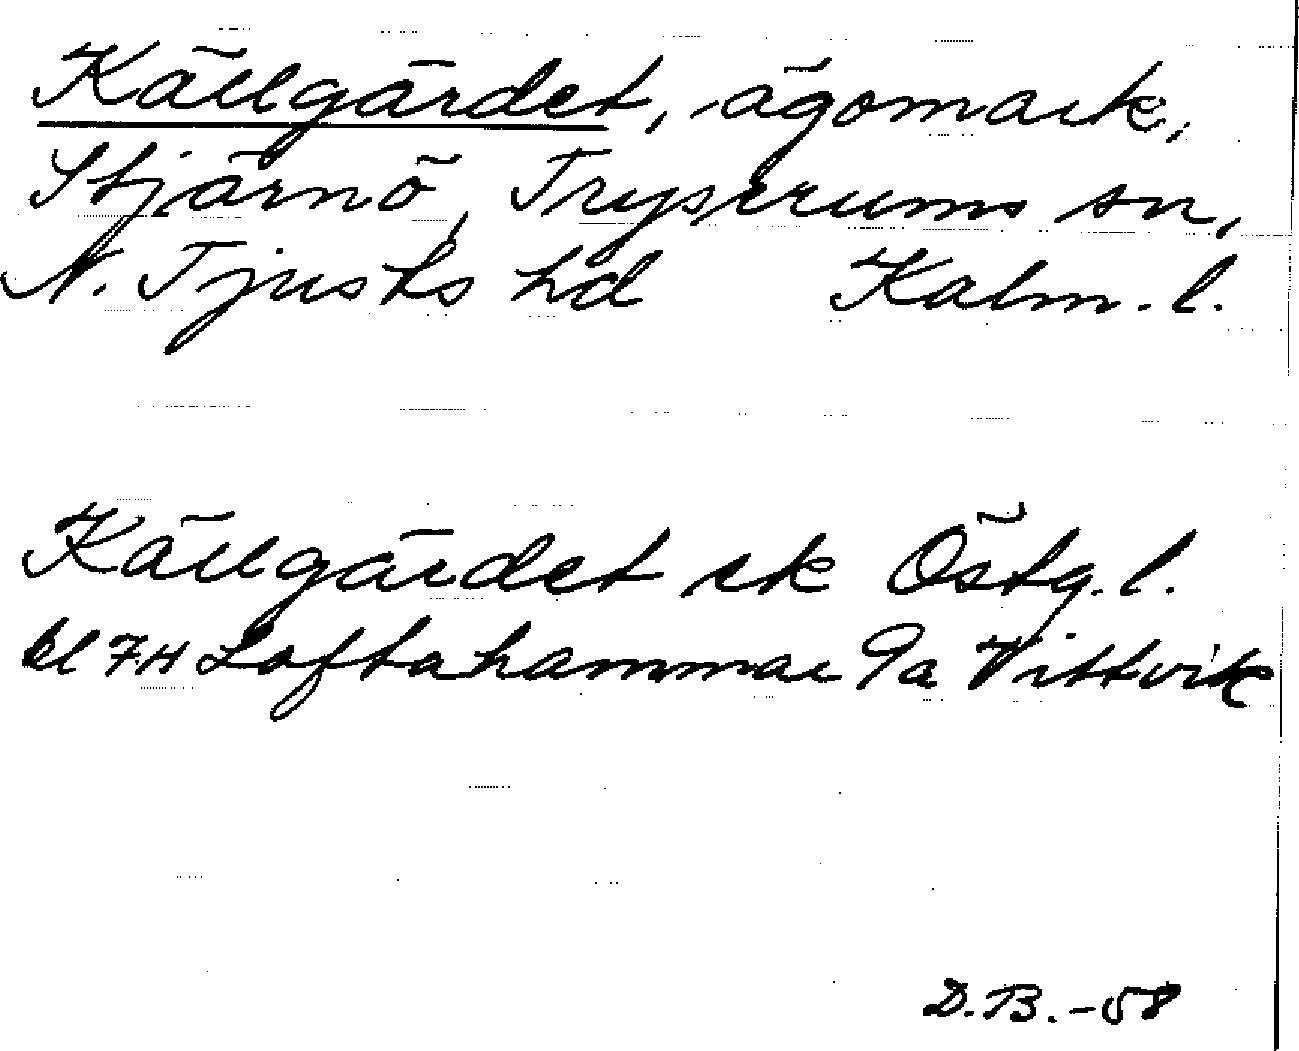 Källgärdet, ägomark,
Stjärnö, Tryserums sn,
N. Tjusts hd Kalm. l.
Källgärdet ek Östg. l.
bl 7H Loftahammar 9a Vittvik
D.B. -58